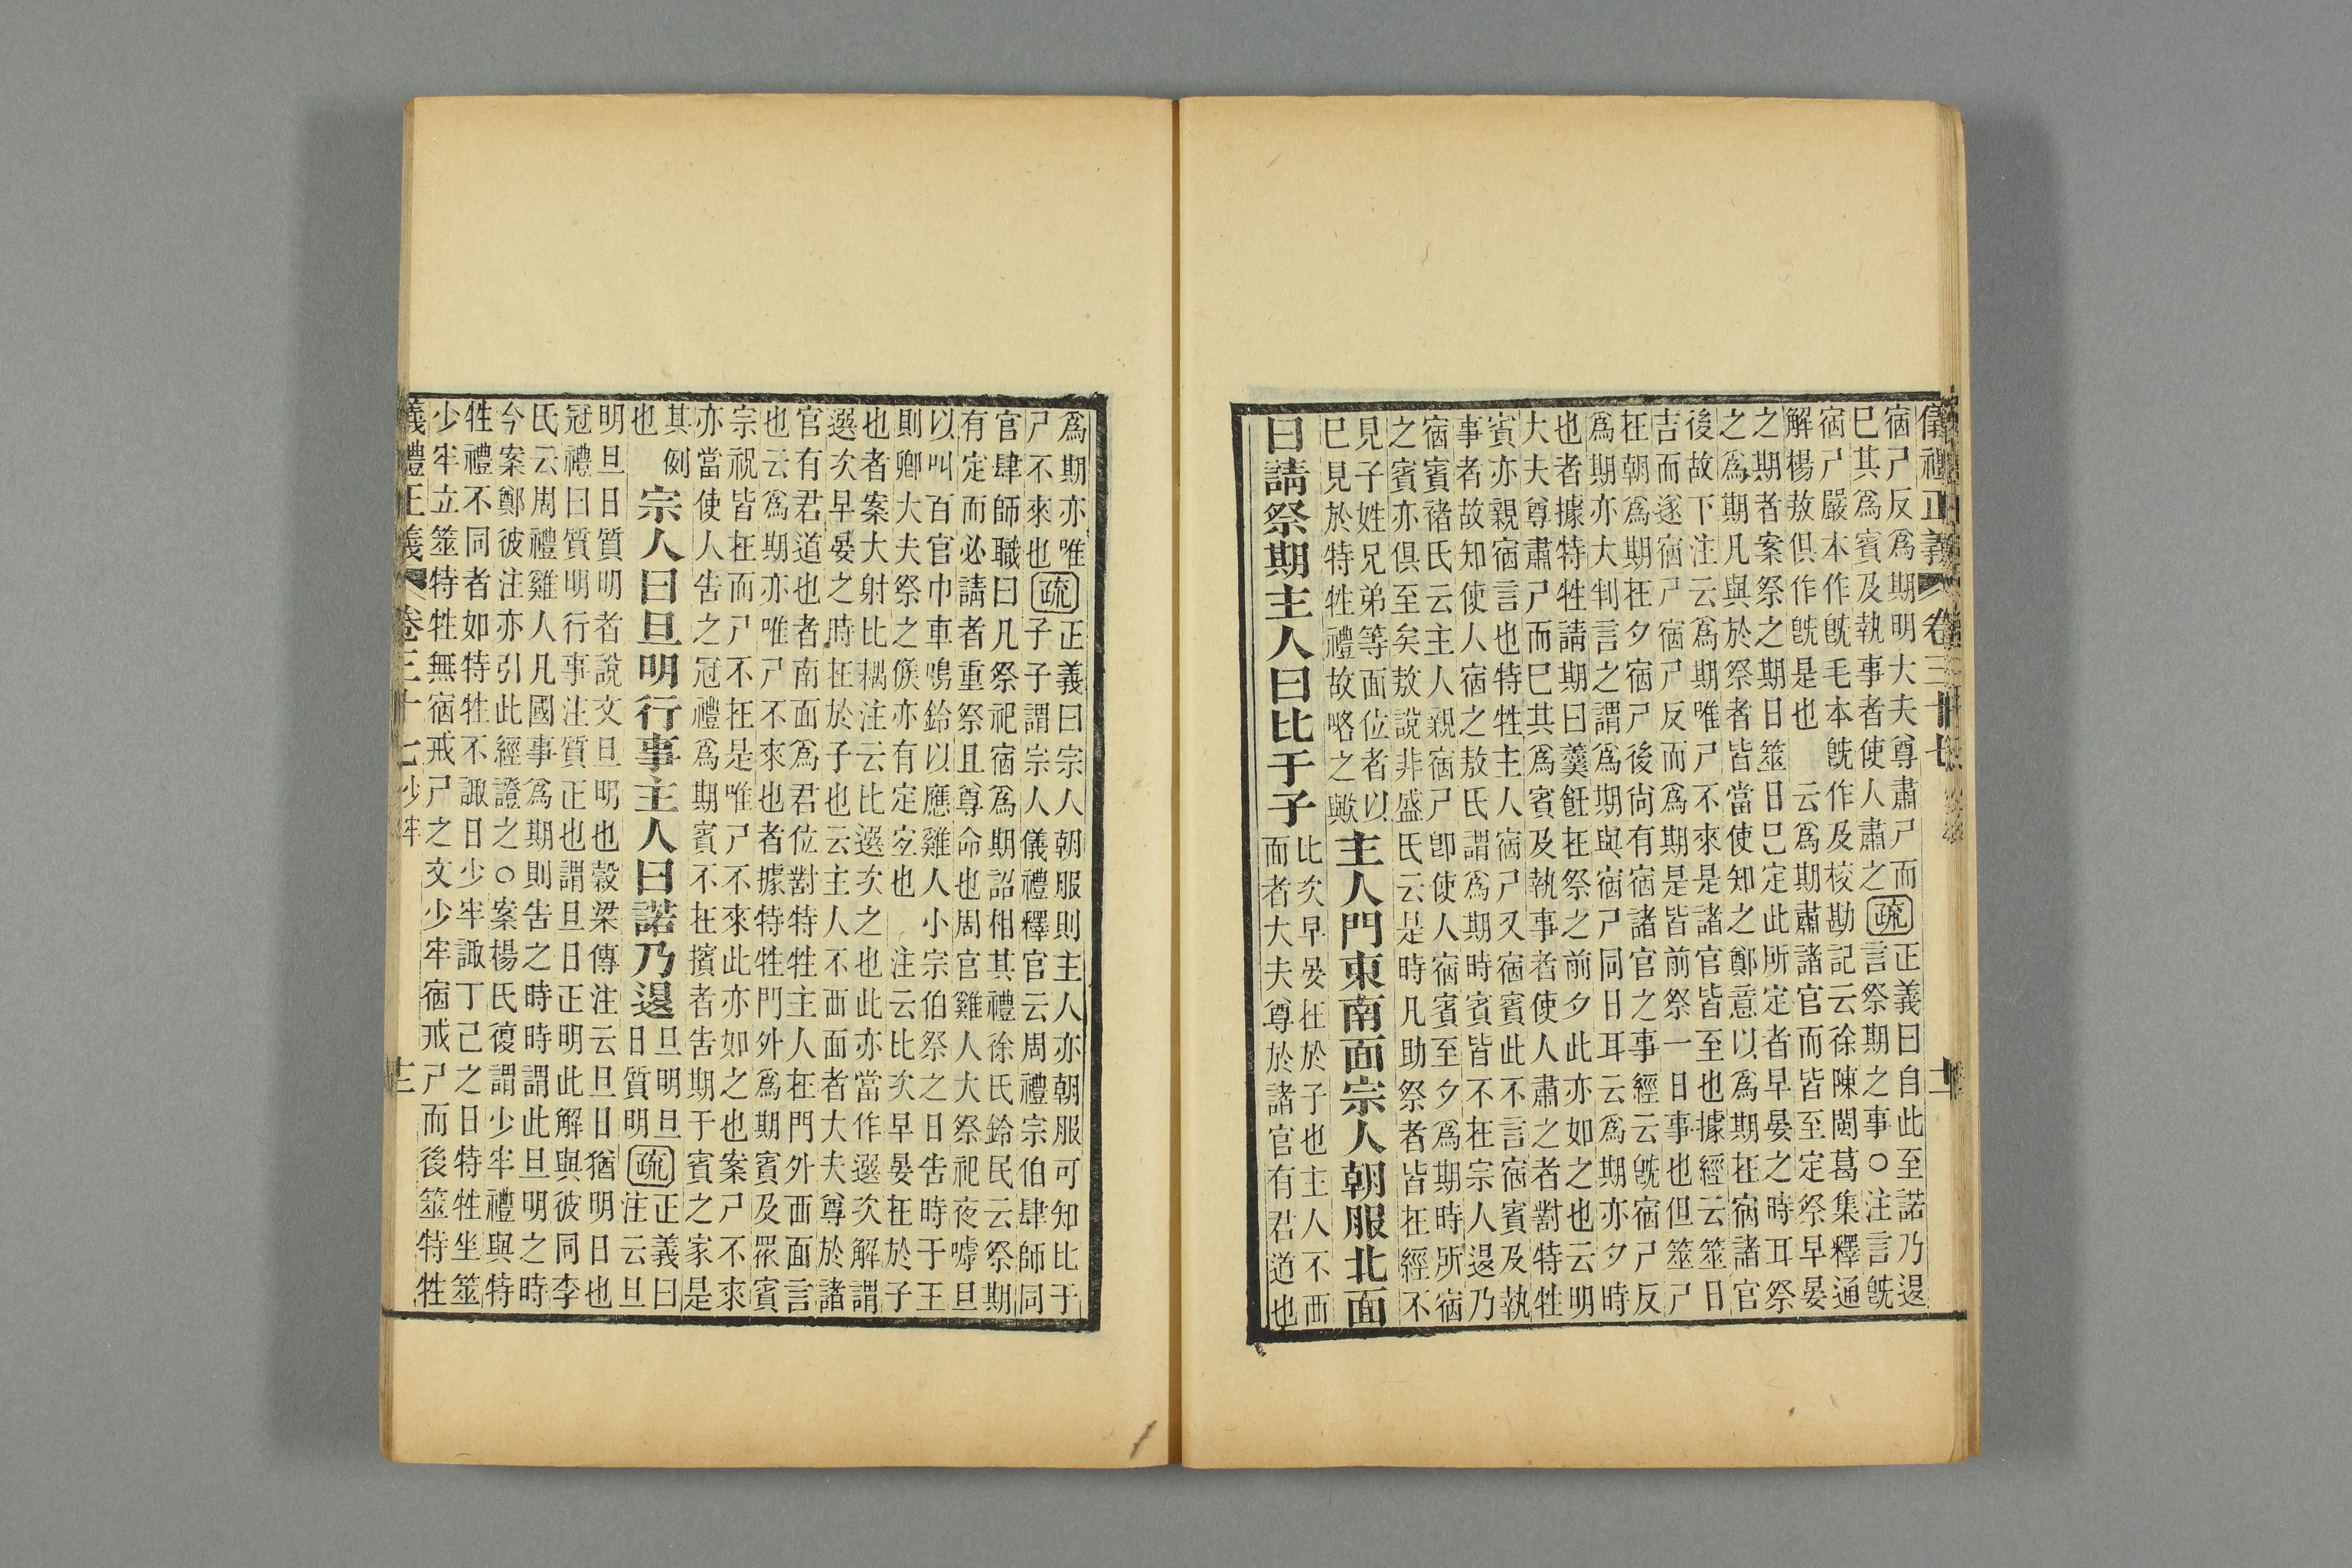 儀禮正義 卷三十七
宿尸反爲期明大夫尊肅尸而疏正義曰自此至諾乃退
巳其爲賓及執事者使人肅之言祭期之事○注言旣
宿尸嚴本作旣毛本旣作及校勘記云徐陳閩葛集釋通
解楊敖俱作旣是也 云爲期肅諸官而皆至定祭早晏
之期者案祭之期日筮日已定此所定者早晏之時耳祭
之爲期凡與於祭者皆當使知之鄭意以爲期在宿諸官
後故下注云爲期唯尸不來是諸官皆至也據經云筮日
吉而遂宿尸宿尸反而爲期是皆前祭一日事也但筮尸
在朝爲期在夕宿尸後尙有宿諸官之事經云旣宿尸反
爲期亦大判言之謂爲期與宿尸同日耳云爲期亦夕時
也者據特牲請期曰羹飪在祭之前夕此亦如之也云明
大夫尊肅尸而巳其爲賓及執事者使人肅之者對特牲
賓亦親宿言也特牲主人宿尸又宿賓此不言宿賓及執
事者故知使人宿之敖氏謂爲期時賓皆不在宗人退乃
宿賓褚氏云主人親宿尸卽使人宿賓至夕爲期時所宿
之賓亦俱至矣敖說非盛氏云是時凡助祭者皆在經不
見子姓兄弟等面位者以
巳見於特牲禮故略之歟主人門東南面宗人朝服北面
曰請祭期主人曰比于子比次早晏在於子也主人不西
面者大夫尊於諸官有君道也
爲期亦唯尸不來也疏正義曰宗人朝服則主人亦朝服可知比于
子子謂宗人儀禮釋官云周禮宗伯肆師同
官肆師職曰凡祭祀宿爲期詔相其禮徐氏鈴民云祭期
有定而必請者重祭且尊命也周官雞人大祭祀夜嘑旦
以叫百官巾車鳴鈴以應雞人小宗伯祭之日告時于王
則卿大夫祭之候亦有定㝎也 注云比次早晏在於子
也者案大射比耦注云比選次之也此亦當作選次解謂
選次早晏之時在於子也云主人不西面者大夫尊於諸
官有君道也者南面爲君位對特牲主人在門外西面言
也云爲期亦唯尸不來也者據特牲門外爲期賓及眾賓
宗祝皆在而尸不在是唯尸不來此亦如之也案尸不來
亦當使人告之冠禮爲期賓不在擯者告期于賓之家是
其例
也 宗人曰旦明行事主人曰諾乃退旦明旦日質明疏正義曰注云旦
明旦日質明者說文旦明也穀梁傳注云旦日猶明日也
冠禮曰質明行事注質正也謂旦日正明此解與彼同李
氏云周禮雞人凡國事爲期則告之時時謂此旦明之時
今案鄭彼注亦引此經證之○案楊氏復謂少牢禮與特
牲禮不同者如特牲不諏日少牢諏丁己之日特牲坐筮
少牢立筮特牲無宿戒尸之文少牢宿戒尸而後筮特牲
義禮正義 卷三十七少牢 十三